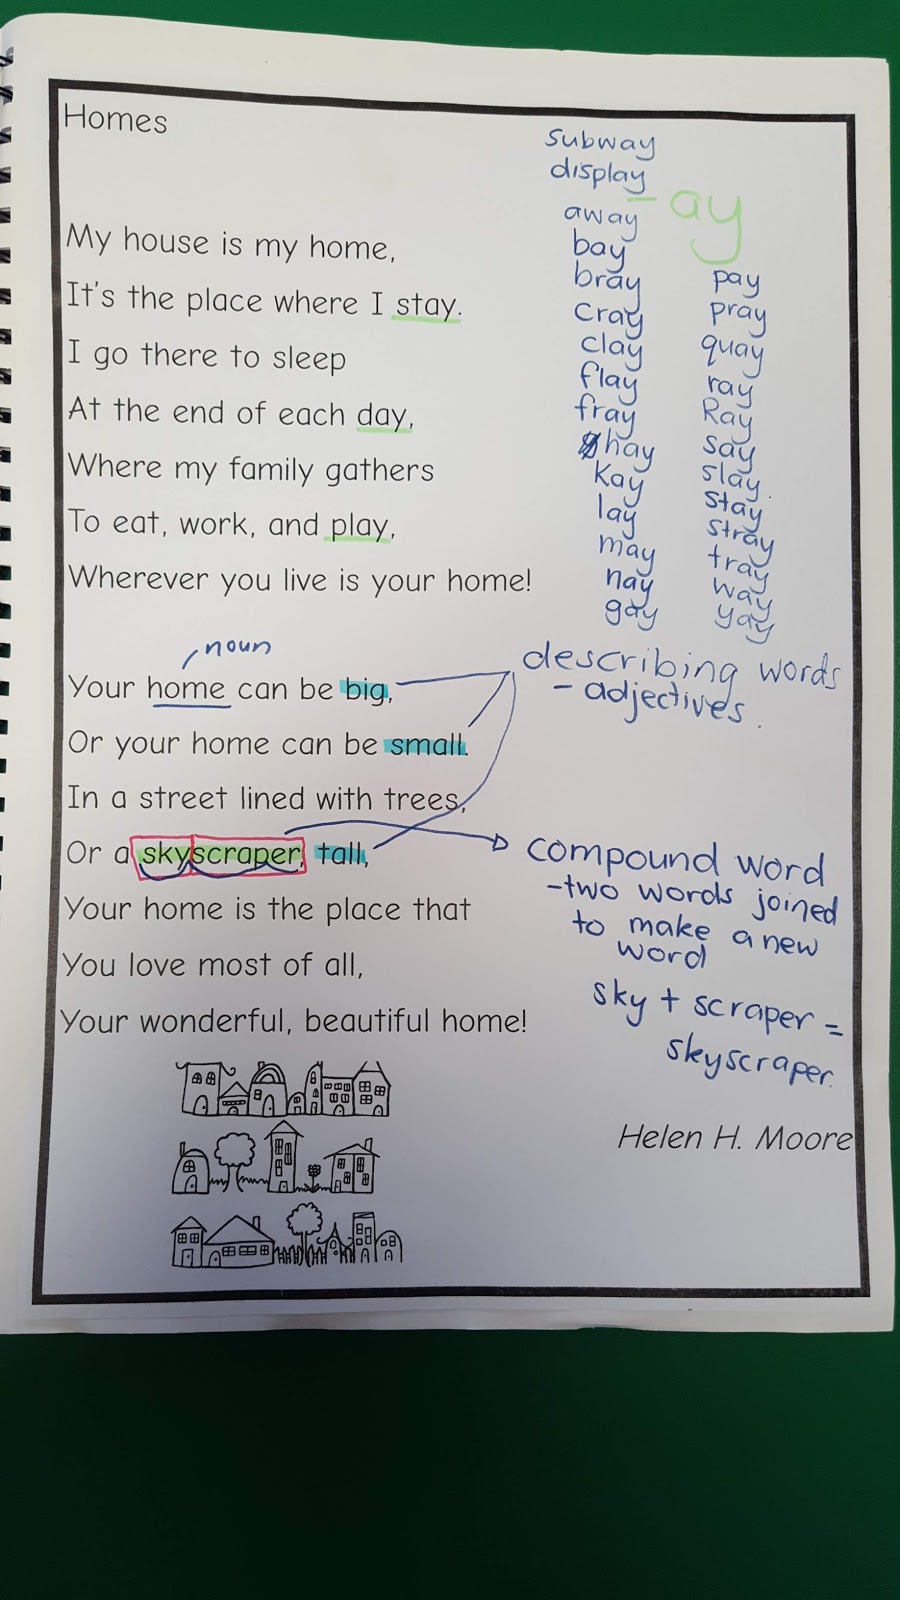 Homes
My house is my home,
It's the place where I stay.
I go there to sleep
At the end of each day,
Where my family gathers
To eat, work, and play,
Wherever you live is your home!
noun
Your home can be big,
Or your home can be small.
In a street lined with trees,
Or a skyscraper, tall,
Your home is the place that
You love most of all,
Your wonderful, beautiful home!
subway
display
away
bay
bray
cray
clay
flay
fray
hay
Kay
lay
may
nay
gay
-ay
pay
pray
quay
ray
Ray
say
slay
stay
stray
tray
way
yay
describing words
- adjectives.
compound word
- two words joined
to make a new
word
sky + scraper =
skyscraper.
Helen H. Moore